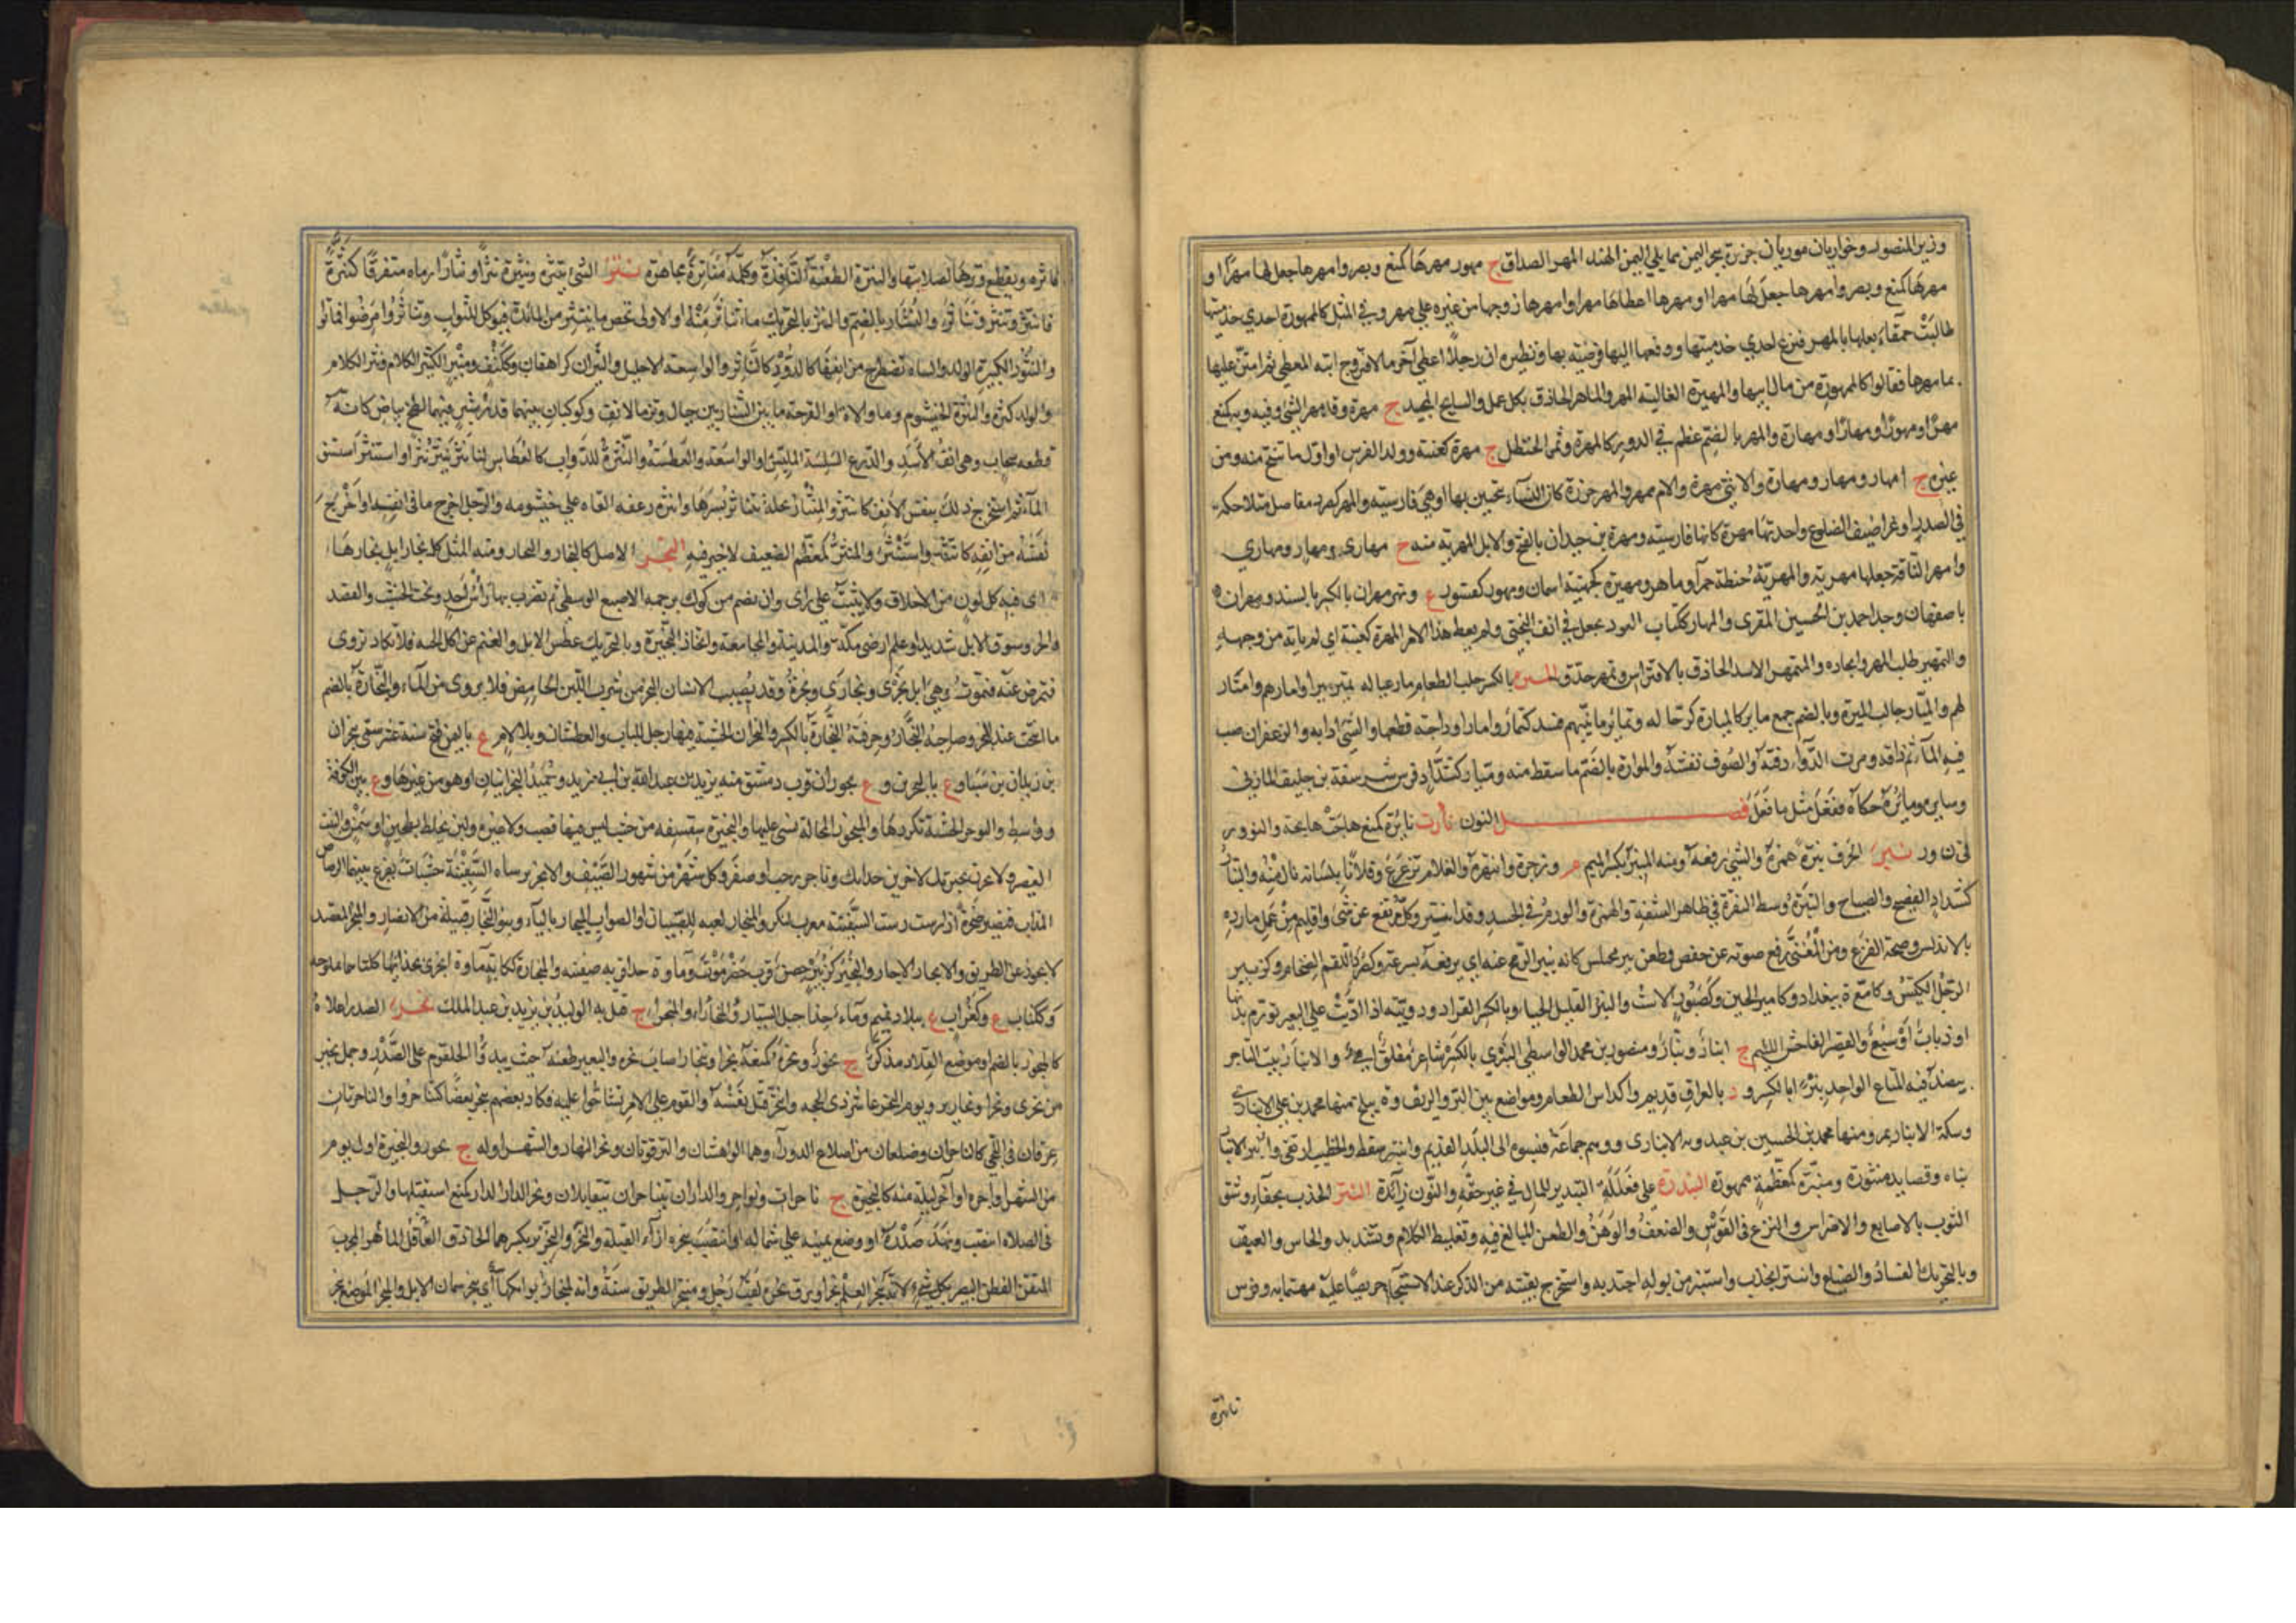 وزير المنصور وخواريان موريان جزيرة ببحر اليمن مما يلي الهند المهر الصداق ج مهور مهرها كمنع ونصر وامهرها جعل لها مهرا او
مهرها كمنع ونصر وامهرها جعل لها مهرا او مهرها اعطاها مهرا وامهرها زوجها من غيره علي مهر وفي المثل كالممهورة احدي خدمتيها
طالبت حمقاء بعلها بالمهر فنزع احدي خدمتيها ودفعها اليها فرضيت بها ونظيره ان رجلا اعطي آخر مالا فتزوج ابنته المعطي ثم امتن عليها
بما مهرها فقالوا كالممهورة من مال ابيها والمهيرة الغالية المهر والماهر الحاذق بكل عمل والسابح المجيد ج مهرة وقد مهر الشي وفيه وبه كمنع
مهرا ومهورا ومهارا ومهارة والمهر بالضم عظم في الزور كالمهرة وثمر الحنظل ج مهرة كعنبة وولد الفرس او اول ما ينتج منه ومن
غيره ج امهار ومهار ومهارة والانثي مهرة والام ممهر والمهر خرزة كان النساء يتحببن بها او هي فارسية والمهر كصرد مفاصل متلاحكة
في الصدر او غراضيف الضلوع واحدتها مهرة كانها فارسية ومهرة بن حيدان بالفتح والابل المهرية منه ج مهاري ومهار ومهاري
وامهر الناقة جعلها مهرية والمهرية حنطة حمرآء وماهر ومهيرة كجهينة اسمان ومهور كقسور ع ونهر مهران بالكسر بالسند ومهران ة
باصفهان وجد احمد بن الحسين المقري والمهار ككتاب العود يجعل في انف البختي ولم يعط هذا الامر المهرة كعنبة اي لم ياته من وجهه
والتمهير طلب المهر واتخاذه والمتمهر الاسد الحاذق بالافتراس وتمهر حذق الميرة بالكسر جلب الطعام مار عياله يمير ميرا وامارهم وامتار
لهم والميار جالب الميرة وبالضم جمع ماير كالميارة كرجالة وتماير ما بينهم فسد كتمار وامار اوداجه قطعها والشي اذابه والزعفران صب
فيه المآء ثم دافه ومرت الدوآء دفته والصوف نفشته والموارة بالضم ما سقط منه وميار كشداد فرس شرسفة بن خليف المازني
وسايره ومايره حكاه ففعل مثل ما فعل فصل النون نأرت نائرة كمنع هاجت هايجة والنؤور
في ن ور نبر الحرف ينبره همزه والشي رفعه ومنه المنبر بكسر الميم وزجره وانتهره والغلام ترعرع وفلانا بلسانه نال منه والنبار
كشداد الفصيح والصياح والنبرة وسط النقرة في ظاهر الشفة والهمزة والورم في الجسد وقد انتبر وكل مرتفع عن شي واقليم من عمل ماردة
بالاندلس وصيحة الفزع ومن المغني رفع صوته عن خفض وطعن نبر مختلس كانه ينبر الرمح عنه اي يرفعه بسرعة وكصرد اللقم الضخام وكزبير
الرجل الكيس وكامعة ة ببغداد وكامير الجبن وكصبور الاست والنبر القليل الحياء وبالكسر القراد ودويبة اذا دبت علي البعير تورم مدبها
او ذباب او سبع والقصير الفاحش اللئيم ج انبار ونبار ومنصور بن محمد الواسطي النبري بالكسر شاعر مفلق امي والانبار بيت التاجر
ينضد فيه المتاع الواحد نبر بالكسر و د بالعراق قديم واكداس الطعام ومواضع بين البر والريف وة ببلخ منها محمد بن علي الانباري
وسكة الانبار بمرو منها محمد بن الحسين بن عبدويه الانباري ووهم جماعة فنسبوه الي البلد القديم وانتبر تنفط والخطيب ارتقي وانبر الانبار
بناه وقصايد منثورة ومنبرة كمعظمة مهموزة النبذرة علي فعللة التبذير للمال في غير حقه والنون زائدة النتر الجذب بجفاء وشق
الثوب بالاصابع والاضراس والنزع في القوس والضعف والوهن والطعن المبالغ فيه وتغليظ الكلام وتشديده والخلس والعنف
وبالتحريك الفساد والضياع وانتتر انجذب واستنتر من بوله اجتذبه واستخرج بقيته من الذكر عند الاستنجاء حريصا عليه مهتما به وقوس
ناترة
ناترة ويقطع وترها لصلابتها والنترة الطعنة النافذة وكلمة مناترة مجاهرة نثر الشي ينثره وينثره نثرا ونثارا رماه متفرقا كنثره
فانتثر وتنثر وتناثر والنثار بالضم والنثر بالتحريك ما تناثر منه او الاولي تخص ما ينتثر من المائدة فيوكل للثواب وتناثروا مرضوا فماتوا
والنثور الكثيرة الولد والشاة تطرح من انفها كالدود كالناثر والواسعة الاحليل والنيثران كريهقان وككتف ومنبر الكثير الكلام ونثر الكلام
والولد كثره والنثرة الخيشوم وما والاه او الفرجة ما بين الشاربين حيال وترة الانف وكوكبان بينهما قدر شبر وفيهما لطخ بياض كانه
قطعة سحاب وهي انف الاسد والدرع السلسة الملبس او الواسعة والعطسة والنثير للدواب كالعطاس لنا نثر ينثر نثيرا واستنثر استنشق
المآء ثم استخرج ذلك بنفس الانف كانتثر والمنثار نخلة يتناثر بسرها وانثره رعفه القاه علي خيشومه والرجل اخرج ما في انفه او اخرج
نفسه من انفه كانتثر واستنثر والمنثر كمعظم الضعيف لا خير فيه النجر الاصل كالنجار والنجار ومنه المثل كل نجار ابل نجارها
اي فيه كل لون من الاخلاق ولا يثبت علي راي وان تضم من كفك برجمة الاصبع الوسطي ثم تضرب بها راس احد ونحت الخشب والقصد
والحر وسوق الابل شديدا وعلم ارضي مكة والمدينة والمجامعة واتخاذ النجيرة وبالتحريك عطش الابل والغنم عن اكل الحبة فلا تكاد تروي
فتمرض عنه فتموت وهي ابل نجري ونجاري ونجرة وقد يصيب الانسان النجر من شرب اللبن الحامض فلا يروي من المآء والنجارة بالضم
ما انتحت عند النجر وصاحبه النجار وحرفته النجارة بالكسر والنجران الخشبة فيها رجل الباب والعطشان وبلا لام ع باليمن فتح سنة عشر سمي بنجران
بن زيدان بن سبا و ع بالبحرين و ع بحوران قرب دمشق منه يزيد بن عبد الله بن ابي يزيد وحميد النجرانيان او هو من غيرها و ع بين الكوفة
وواسط والنوجر الخشبة تكرب بها والمنجور المحالة يسني عليها والنجيرة سقيفة من خشب ليس فيها قصب ولا غيره ولبن يخلط بطحين او سمن والنبت
القصير ولاجزين نجيرتك لاجزين جزاك وناجر رجب او صفر وكل شهر من شهور الصيف والانجر مرساة السفينة خشبات يفرغ بينها الرصاص
المذاب فتصير كصخرة اذا رست رست السفينة معرب لنكر والمنجار لعبة للصبيان او الصواب الميجار بالياء وبنو النجار قبيلة من الانصار والمنجر المقصد
لا يحور عن الطريق والانجار الاجار والنجير كزبير حصن قرب حضرموت ومآء وة حذاء صفينة والنجارة ككتابة ماءة اخري بحذائها كلتاهما ملوحة
وككتاب ع وكغراب ع ببلاد تميم ومآء حذاء جبل الستار والنجرآء والنجرآء ع قتل به الوليد بن يزيد بن عبد الملك نحر الصدر اعلاه
كالمنحور بالضم او موضع القلادة مذكر ج نحور ونحره كمنعه نحرا وتنحارا اصاب نحره والبعير طعنه حيث يبدو الحلقوم علي الصدر وجمل نحير
من نحري ونحرا ونحاير ويوم النحر عاشر ذي الحجة وانتحر قتل نفسه والقوم علي الامر تشاحوا عليه فكاد بعضهم ينحر بعضا كتناحروا والناحرتان
عرقان في اللحي كالناحران وضلعان من اضلاع الزور او هما الواهنتان والترقوتان ونحر النهار والشهر اوله ج نحور والنحيرة اول يوم
من الشهر او آخره او آخر ليلة منه كالنحير ج ناحرات ونواحر والداران تتناحران تتقابلان ونحر الدار الدار كمنع استقبلتها والرجل
في الصلاة انتصب ونهد صدره او وضع يمينه علي شماله او انتصب بنحره ازآء القبلة والنحر والنحرير بكسرهما الحاذق الماهر العاقل المجرب
المتقن الفطن البصير بكل شي لانه ينحر العلم نحرا وبرق نحره لقب رجل ومنحر الطريق سننه وانه لمنحار بوائكها اي ينحر سمان الابل والمنحر الموضع ينحر